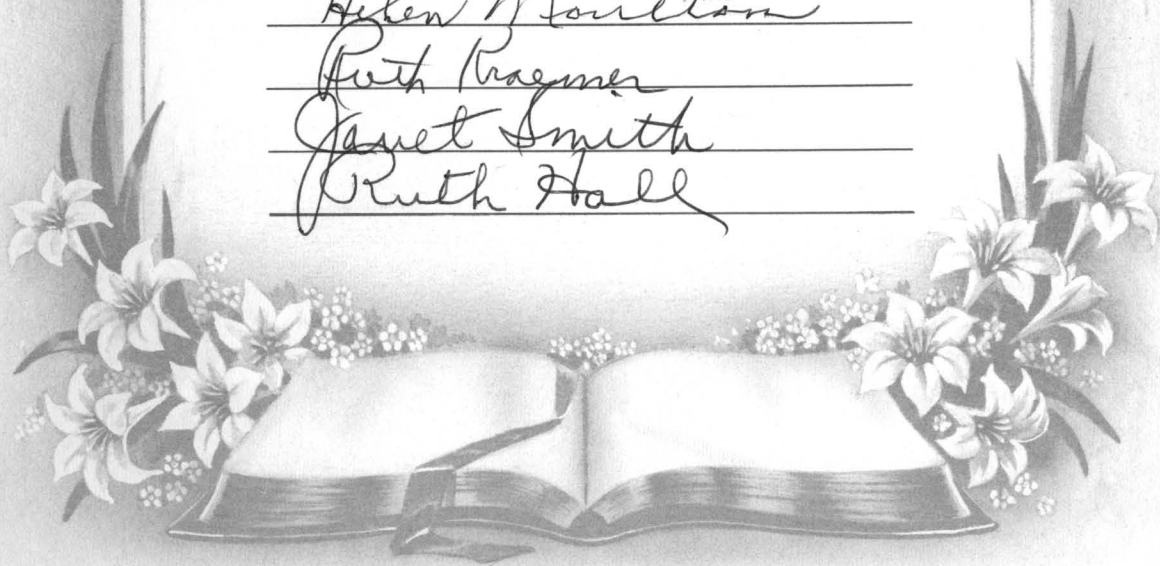 Helen Moulton
Ruth Kraemer
Janet Smith
Ruth Hall